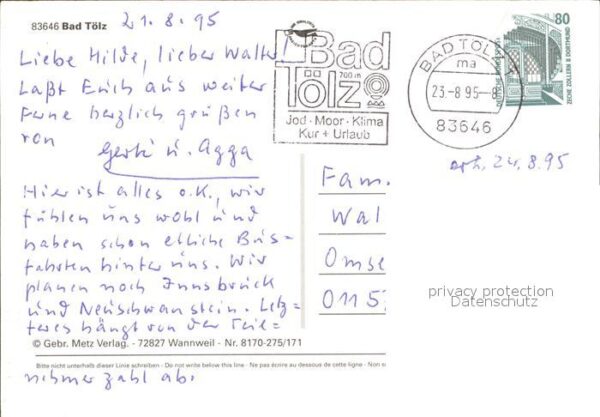 83646 Bad Tölz 21.8.95
Liebe Hilde, lieber Walter!
Laßt Euch aus weiter
Ferne herzlich grüßen
von
Gerti u. Agga
Hier ist alles o.k., wir
fühlen uns wohl und
haben schon etliche Bus=
fahrten hinter uns. Wir
planen noch Innsbruck
und Neuschwanstein. Letz=
teres hängt von der Teil=
© Gebr. Metz Verlag. - 72827 Wannweil - Nr. 8170-275/171
Bitte nicht unterhalb dieser Linie schreiben · Do not write below this line · Ne pas écrire au dessous de cette ligne · Non s
nehmerzahl ab.
Bad
Tölz
700 m
Jod · Moor · Klima
Kur + Urlaub
BAD TÖLZ
ma
23.-8.95-8
83646
80
DEUTSCHE BUNDESPOST
ZECHE ZOLLERN II DORTMUND
erh. 24.8.95
Fam.
Wal
Omse
0115
privacy protection
Datenschutz